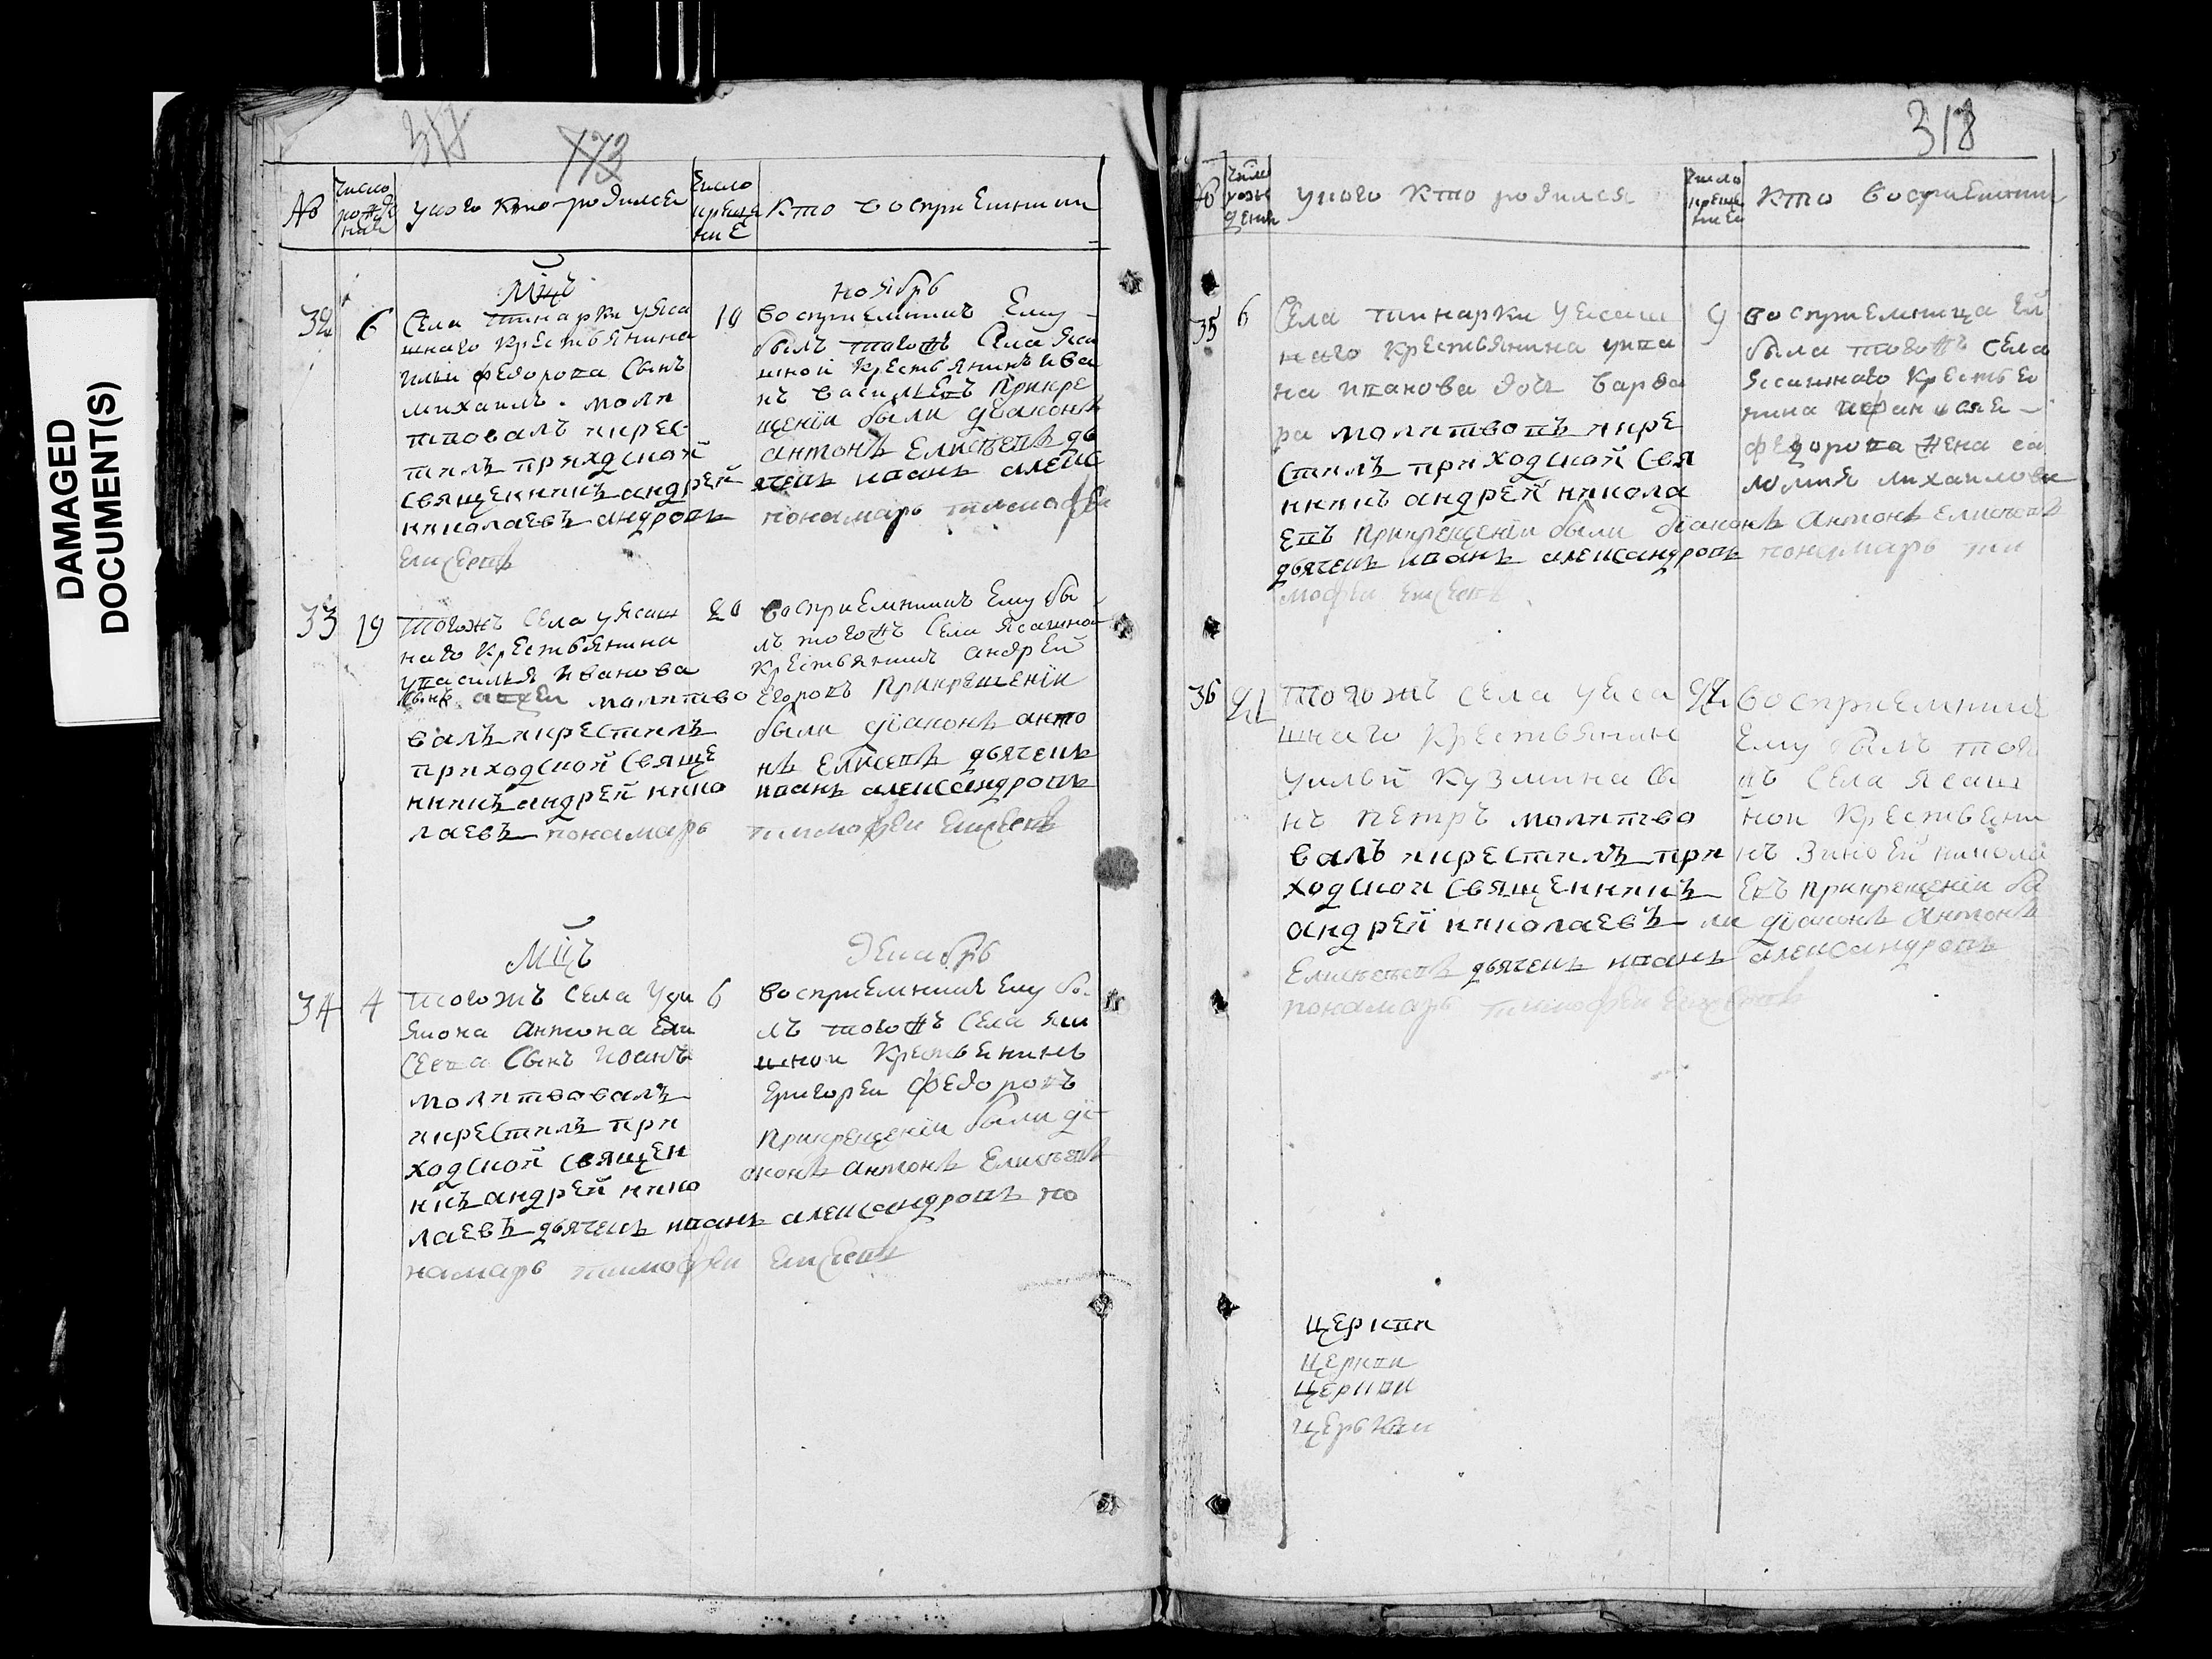 DAMAGED
DOCUMENT(S)
318
173
№
Число рождения
у кого кто родился
Число крещения
кто восприемники
Мцъ
ноябрь
32
6
Села тинарки у яса
шнаго крестьянина
ильи федорова сынъ
михаилъ. моли
твовалъ икрес
тилъ приходской
священникъ андрей
николаевъ андровъ
елисеевъ
10
восприемникъ ему
былъ тогожъ села яса
шной крестьянинъ ива
нъ васильевъ прикре
щении были диаконъ
антонъ елисеевъ дь
ячекъ иванъ алекс
понамарь тимофеи
33
19
тогожъ села у ясаш
наго крестьянина
увасилья иванова
сынъ молитво
валъ икрестилъ
приходской свяще
нникъ андрей нико
лаевъ понамарь
20
восприемникъ ему бы
лъ тогожъ села ясашной
крестьянинъ андрей
егоровъ прикрещении
были диаконъ анто
нъ елисеевъ дьячекъ
иванъ александровъ
тимофеи елисеевъ
Мцъ
декабрь
34
4
тогожъ села у ди
якона антона ели
сеева сынъ иванъ
молитвовалъ
икрестилъ при
ходской священ
никъ андрей нико
лаевъ дьячекъ иванъ александровъ по
намарь тимофеи елисеевъ
6
восприемникъ ему бы
лъ тогожъ села яса
шнои крестьенинъ
григореи федоровъ
прикрещении были ди
аконъ антонъ елисеевъ
318
№
Число рождения
у кого кто родился
Число крещения
кто восприемники
35
6
Села тинарки у ясаш
наго крестьянина ива
на иванова дочь варва
ра молитвовъ икре
стилъ приходской свя
нникъ андрей никола
евъ прикрещении были диаконъ антонъ елисеевъ
дьячекъ иванъ александровъ понамарь ти
мофеи елисеевъ
9
восприемница ей
была тогожъ села
ясашнаго крестье
нина
федорова жена са
ломия михаилова
36
21
тогожъ села у яса
шнаго крестьянин
у ильи кузмина сы
нъ петръ молитво
валъ икрестилъ при
ходской священникъ
андрей николаевъ
елисеевъ дьячекъ иванъ александровъ
понамарь тимофеи елисеевъ
22
восприемникъ
ему былъ того
жъ села ясаш
нои крестьени
нъ зиновей никола
евъ прикрещении бы
ли диаконъ антонъ
церкви
церкви
церкви
церькви